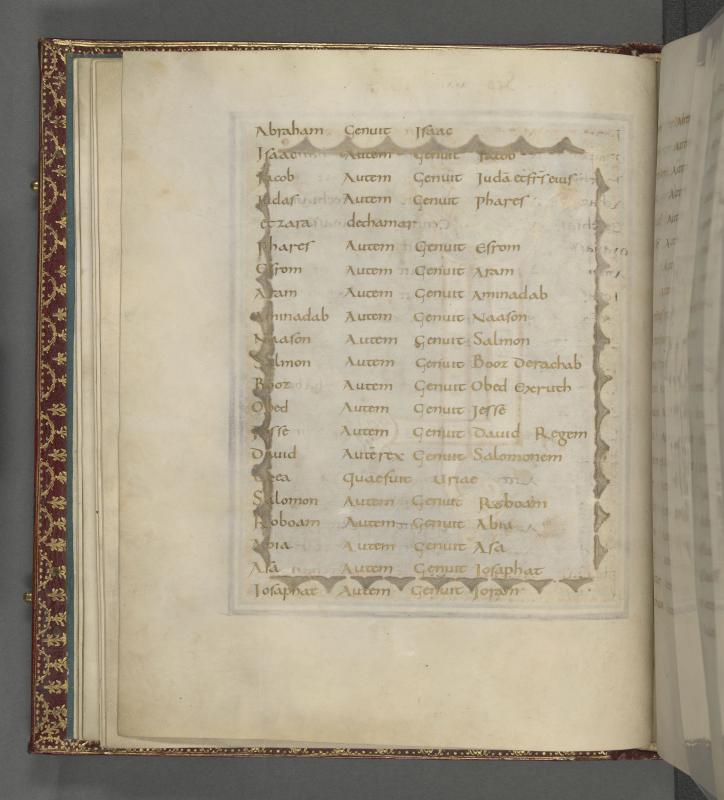 Abraham Genuit Isaac
Isaac Autem Genuit Jacob
Jacob Autem Genuit Judā et frs̄ eius
Judas Autem Genuit phares
et zara dechamar
phares Autem Genuit Esrom
Esrom Autem Genuit Aram
Aram Autem Genuit Aminadab
Aminadab Autem Genuit Naason
Naason Autem Genuit Salmon
Salmon Autem Genuit Booz Derachab
Booz Autem Genuit Obed Exruth
Obed Autem Genuit Jesse
Jesse Autem Genuit David Regem
David Autē rex Genuit Salomonem
quaefuit uriae
Salomon Autem Genuit Roboam
Roboam Autem Genuit Abia
Abia Autem Genuit Asa
Asa Autem Genuit Iosaphat
Iosaphat Autem Genuit Joram